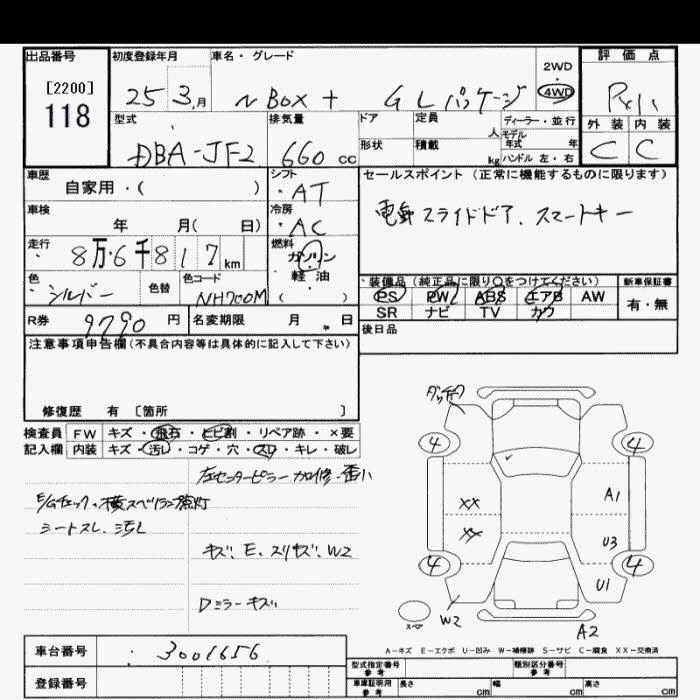 出品番号 初度登録年月 車名・グレード 2WD・4WD 評価点
[2200]
118
25 3月 N BOX + GLパッケージ
型式 排気量 ドア 定員 人 ディーラー・並行 外装 内装
モデル年式 年
DBA-JF2 660cc 形状 積載 kg ハンドル 左・右 C C
車歴 シフト セールスポイント(正常に機能するものに限ります)
自家用・( ) AT
電動スライドドア、スマートキー
車検 冷房
年 月( 日) AC
走行 燃料
8万6千817km ガソリン
軽油
( )
色 色替 色コード
シルバー NH700M
・装備品(純正品に限り○をつけてください) 新車保証書
PS PW ABS エアB AW 有・無
SR ナビ TV カワ
R券 9790円 名変期限 月 日 後日品
注意事項申告欄(不具合内容等は具体的に記入して下さい)
修復歴 有 [箇所 ]
検査員 FW キズ・飛石・ヒビ割・リペア跡・×要
記入欄 内装 キズ・汚し・コゲ・穴・スレ・キレ・破レ
左センターピラー加修・歪小
E/Gチェック、横スベリランプ点灯
シートスレ、汚レ
キズ、E、スリキズ、W2
Dミラーキズ
4 4
XX A1
XX U3
4 4
U1
スペア W2 A2
A-キズ E-エクボ U-凹み W-補修跡 S-サビ C-腐食 XX-交換済
車台番号 3001656
登録番号
型式指定番号 参考 類別区分番号 参考
車庫証明用 参考 長さ cm 幅 cm 高さ cm